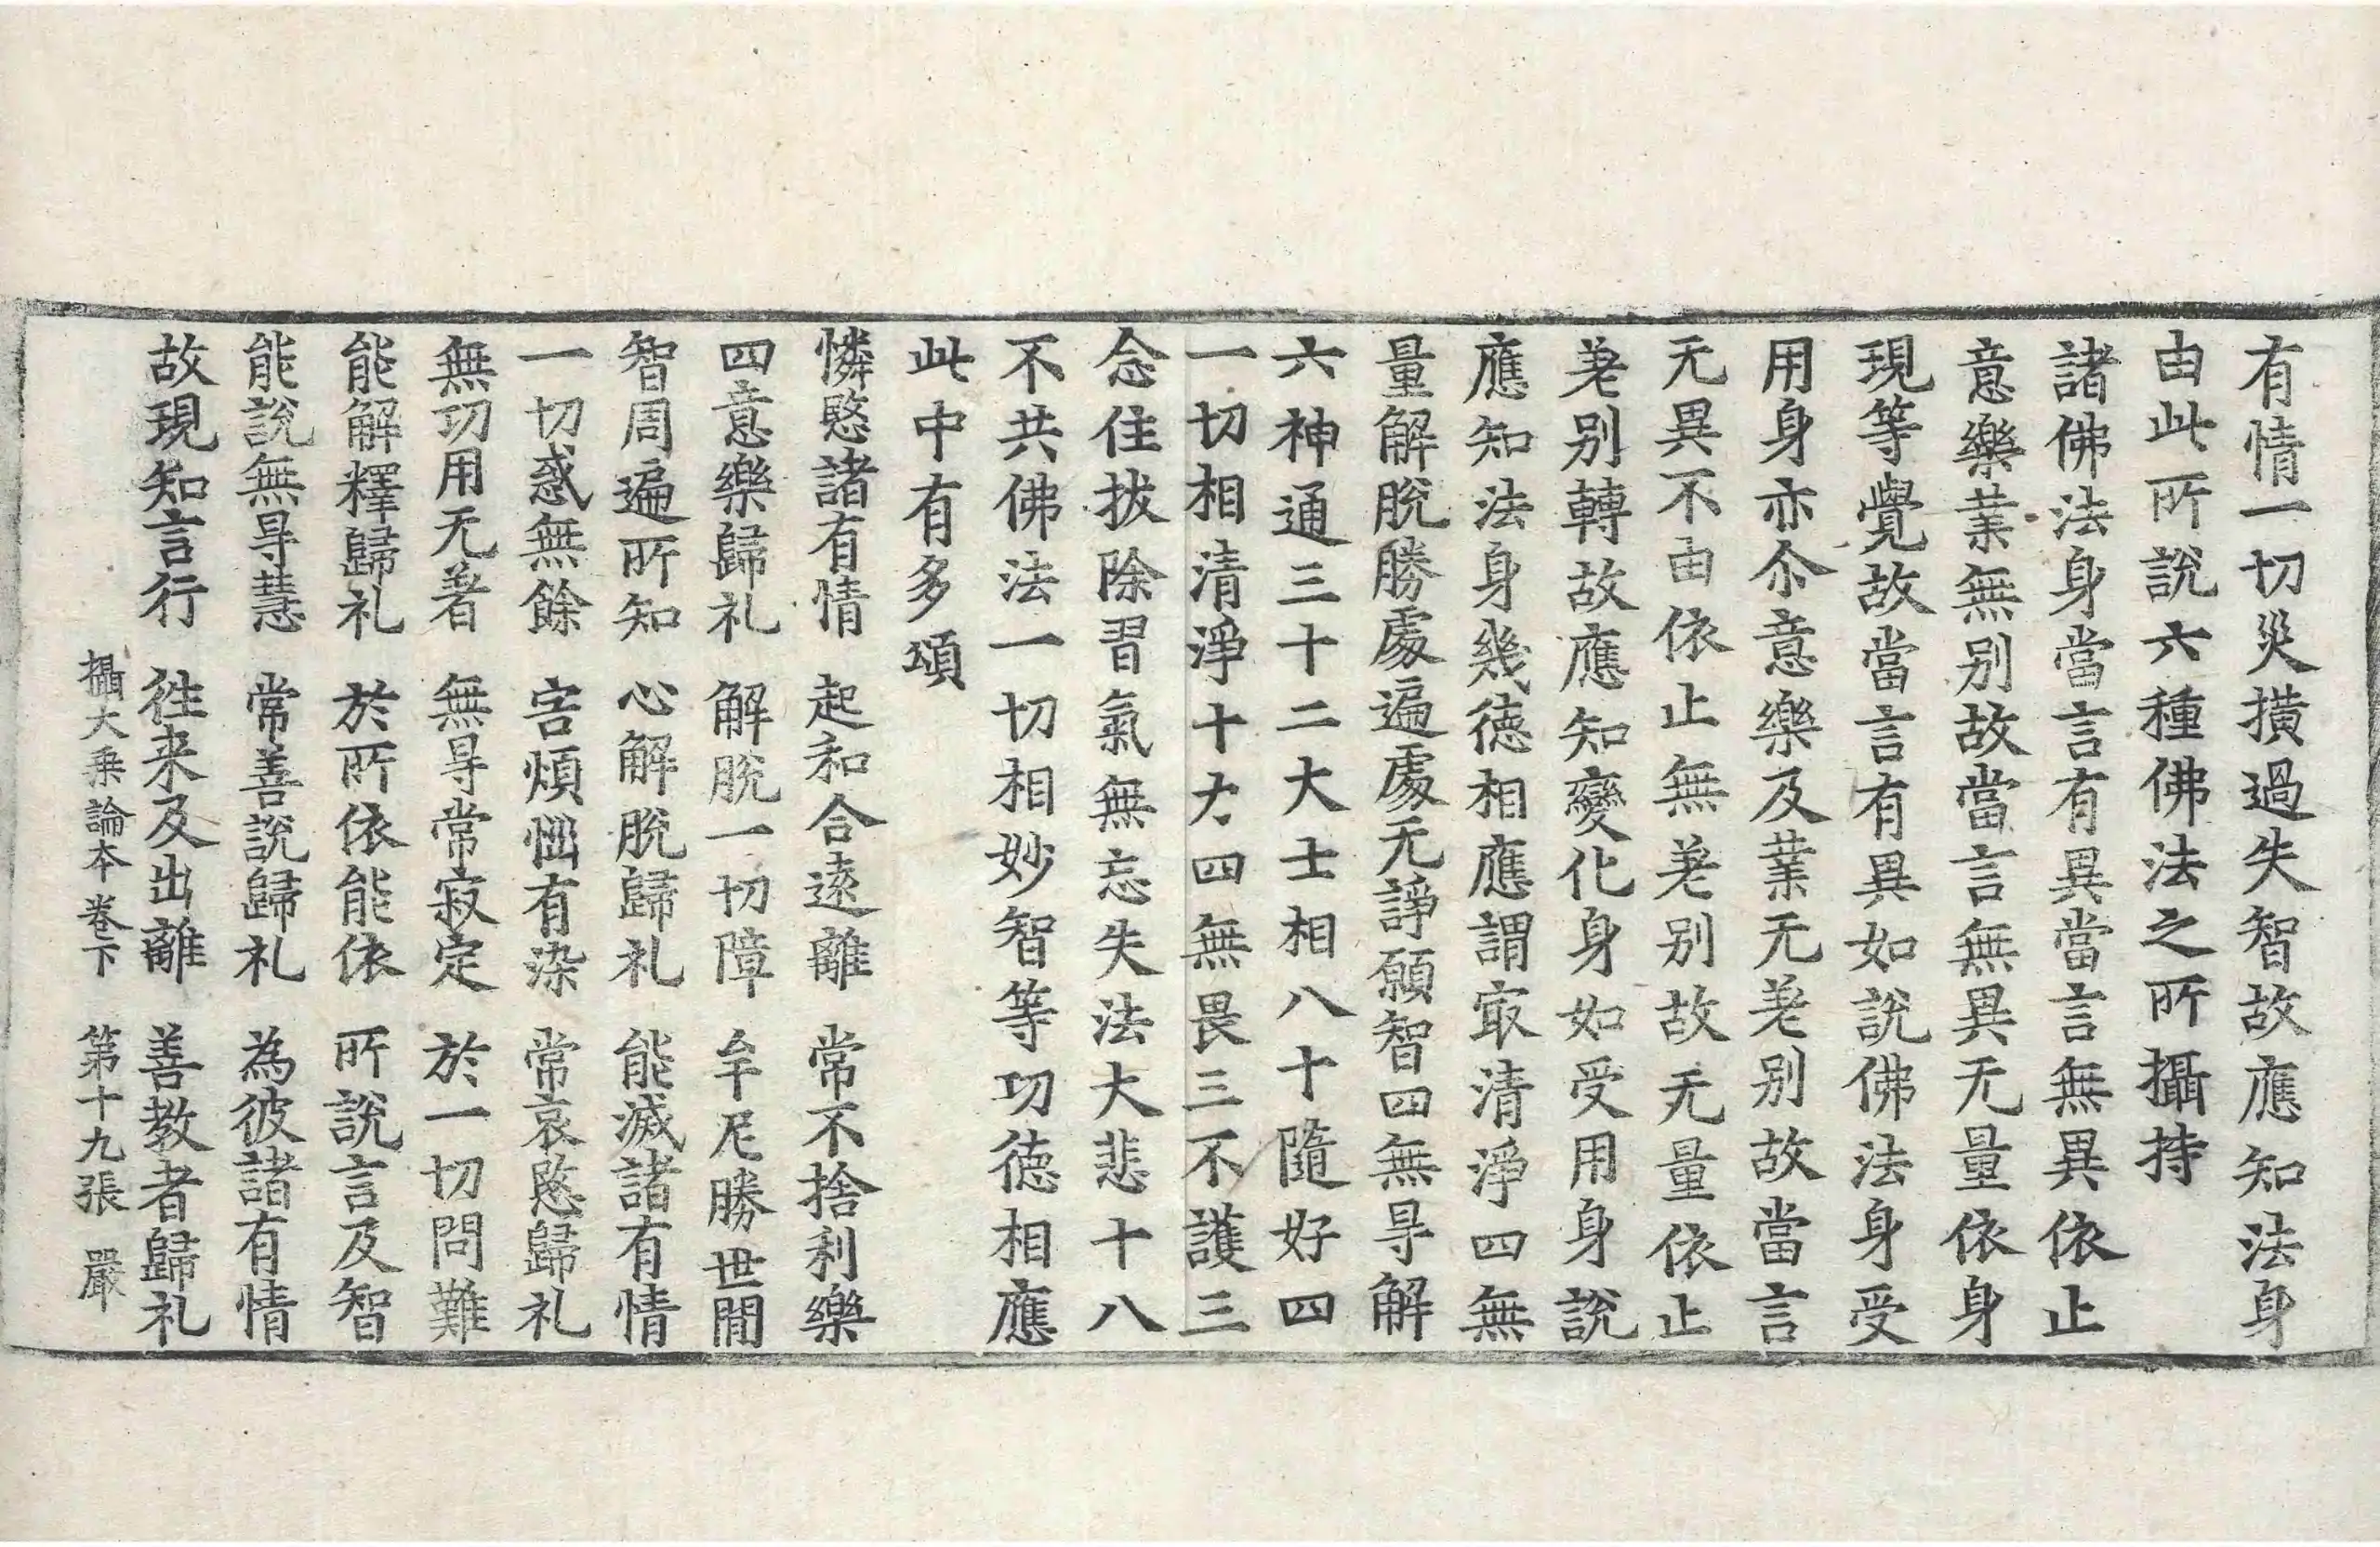 有情一切災撗過失智故應知法身
由此所說六種佛法之所攝持
諸佛法身當言有異當言無異依止
意樂業無别故當言無異无量依身
現等覺故當言有異如說佛法身受
用身亦尒意樂及業无差别故當言
无異不由依止無差别故无量依止
差别轉故應知變化身如受用身說
應知法身幾德相應謂㝡清淨四無
量解脫勝處遍處无諍願智四無㝵解
六神通三十二大士相八十隨好四
一切相清淨十力四無畏三不護三
念住拔除習氣無忘失法大悲十八
不共佛法一切相妙智等功德相應
此中有多頌
憐愍諸有情　起和合遠離　常不捨利樂
四意樂歸礼　解脫一切障　牟尼勝世閒
智周遍所知　心解脫歸礼　能滅諸有情
一切惑無餘　害煩惱有染　常哀愍歸礼
無功用无著　無㝵常寂定　於一切問難
能解釋歸礼　於所依能依　所說言及智
能說無㝵慧　常善說歸礼　為彼諸有情
故現知言行　往来及出離　善教者歸礼
攝大乗論本卷下　第十九張　嚴